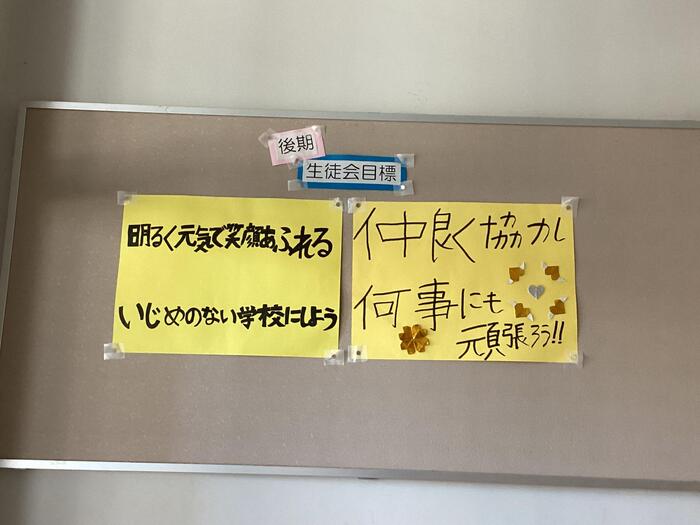 後期
生徒会目標
明るく元気で笑顔あふれる
いじめのない学校にしよう
仲良く協力し
何事にも
頑張ろう!!